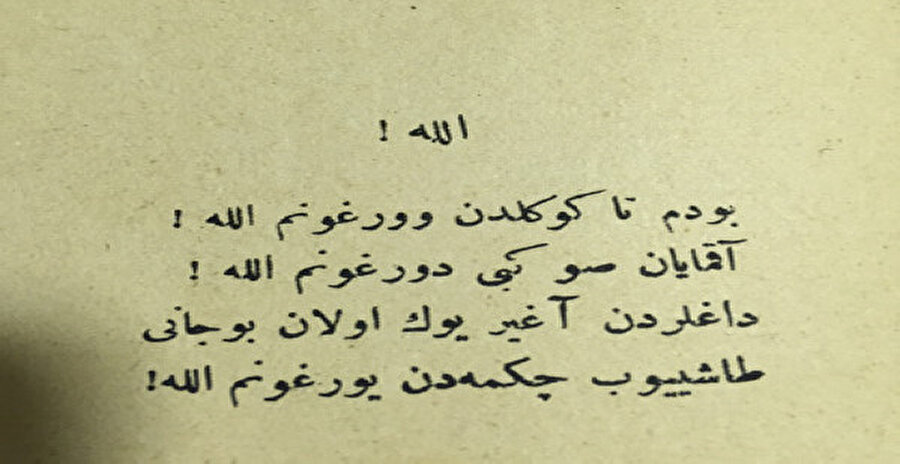 الله !
بودم تا كوكلدن وورغونم الله !
آقمايان صو كبى دورغونم الله !
داغلردن آغير يوك اولان بوجانى
طاشييوب چكمه‌دن يورغونم الله!